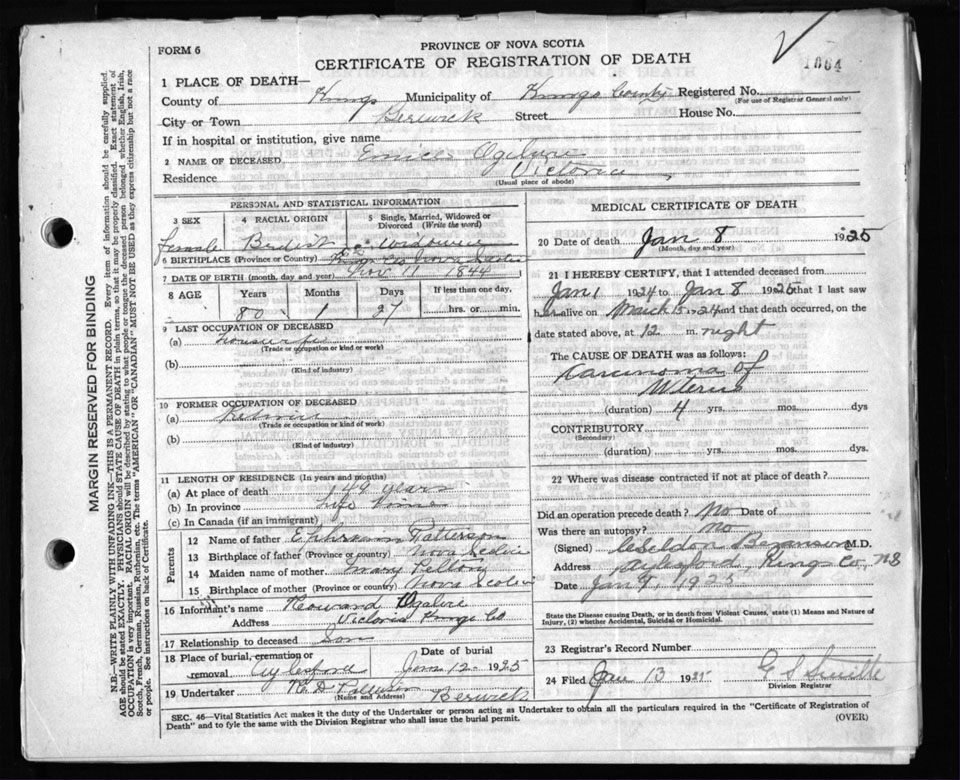 FORM 6
PROVINCE OF NOVA SCOTIA
CERTIFICATE OF REGISTRATION OF DEATH
1864
MARGIN RESERVED FOR BINDING
N.B.—WRITE PLAINLY WITH UNFADING INK—THIS IS A PERMANENT RECORD. Every item of information should be carefully supplied.
AGE should be stated EXACTLY. PHYSICIANS should STATE CAUSE OF DEATH in plain terms, so that it may be properly classified. Exact statement of
OCCUPATION is very important. RACIAL ORIGIN will be described by stating to what people or tongue the deceased person belonged whether English, Irish,
Scotch, French, German, Russian, Ruthenian, etc. The terms "AMERICAN" OR "CANADIAN" MUST NOT BE USED as they express citizenship but not a race
or people. See instructions on back of Certificate.
1 PLACE OF DEATH—
County of Kings Municipality of Kings County Registered No.
(For use of Registrar General only)
City or Town Berwick Street House No.
If in hospital or institution, give name
2 NAME OF DECEASED Eunice Ogilvie
Residence Victoria
(Usual place of abode)
PERSONAL AND STATISTICAL INFORMATION
3 SEX Female
4 RACIAL ORIGIN British
5 Single, Married, Widowed or Divorced (Write the word)
6 BIRTHPLACE (Province or Country) Kings Co Nova Scotia
7 DATE OF BIRTH (month, day and year) Nov 11 1844
8 AGE Years Months Days If less than one day,
80 1 27 hrs. or min.
9 LAST OCCUPATION OF DECEASED
(a) Housewife
(Trade or occupation or kind or work)
(b)
(Kind of industry)
10 FORMER OCCUPATION OF DECEASED
(a)
(Trade or occupation or kind or work)
(b)
(Kind of industry)
11 LENGTH OF RESIDENCE (In years and months)
(a) At place of death 49 years
(b) In province Life
(c) In Canada (if an immigrant)
Parents
12 Name of father Patterson
13 Birthplace of father (Province or country) Nova Scotia
14 Maiden name of mother Mary
15 Birthplace of mother (Province or country) Nova Scotia
16 Informant's name
Address Victoria Kings Co
17 Relationship to deceased Son
18 Place of burial, cremation or removal Aylesford Date of burial Jan 12 1925
19 Undertaker Berwick
(Name and Address)
MEDICAL CERTIFICATE OF DEATH
20 Date of death Jan 8 1925
(Month, day and year)
21 I HEREBY CERTIFY, that I attended deceased from
Jan 1 1924 to Jan 8 1925 that I last saw
her alive on March 15 1924 and that death occurred, on the
date stated above, at 12 m. night
The CAUSE OF DEATH was as follows:
Carcinoma of
Uterus
(duration) 4 yrs. mos. dys
CONTRIBUTORY
(Secondary)
(duration) yrs. mos. dys
22 Where was disease contracted if not at place of death?
Did an operation precede death? No Date of
Was there an autopsy? No
(Signed) M.D.
Address Aylesford, Kings Co, NS
Date Jan 1925
State the Disease causing Death, or in death from Violent Causes, state (1) Means and Nature of
Injury, (2) whether Accidental, Suicidal or Homicidal.
23 Registrar's Record Number
24 Filed Jan 13 1925 G S Smith
Division Registrar
SEC. 46—Vital Statistics Act makes it the duty of the Undertaker or person acting as Undertaker to obtain all the particulars required in the "Certificate of Registration of
Death" and to fyle the same with the Division Registrar who shall issue the burial permit.
(OVER)